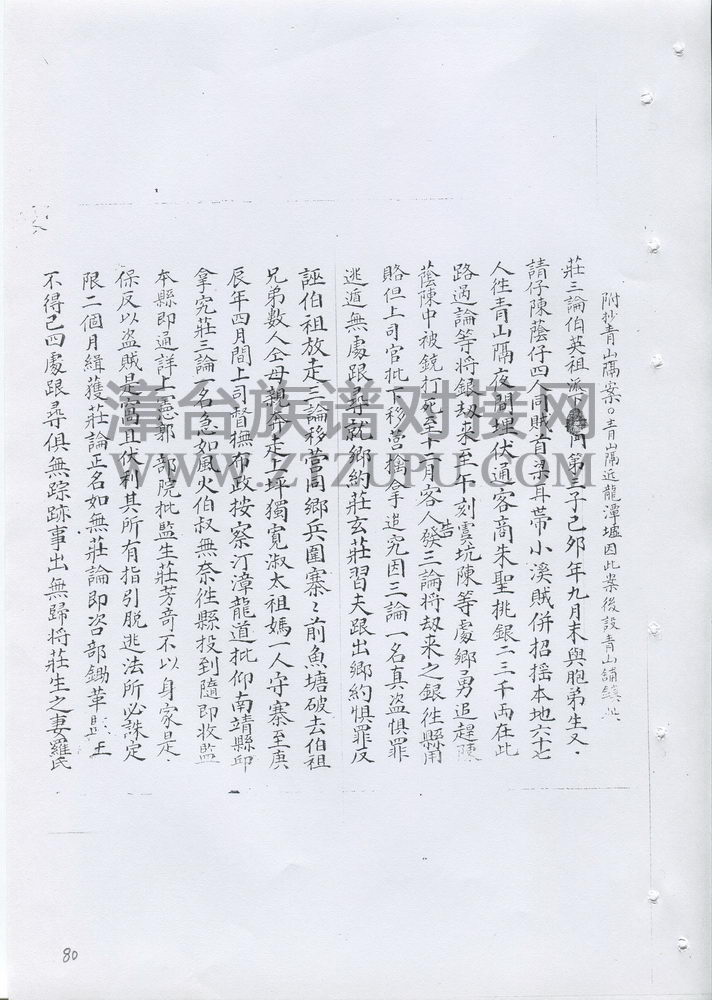 附抄青山隔案。青山隔近龍潭墟因此案後設青山舖鎮此
莊三論伯英祖派下 间第三子己夘年九月末與胞弟生又·
請仔陳蔭仔四人同賊首梁耳帶小溪賊併招摇本地六十七
人徃青山隔夜間埋伏通客商朱聖挑銀二三千両在此
路過論等將銀刼来至午刻雲坑陳等處鄉勇追趕陳
蔭陳中被銃打死至十一月客人發告三論将刼来之銀徃縣用
賂但上司官批下移营擒拿追究因三論一名真盗惧罪
逃遁無處跟尋就鄉約莊玄莊習夫跟出鄉約惧罪反
誣伯祖放走三論移营同鄉兵圍寨〻前魚塘破去伯祖
兄弟數人仝母親奔走上坪獨寬淑太祖媽一人守寨至庚
辰年四月間上司督撫布政按察汀漳龍道批仰南靖縣邱
拿究莊三論一名急如風火伯叔無奈徃縣投到隨即收監
本縣即通詳上憲郭部院批監生莊芳竒不以身家是
保反以盗賊是窩且伏利其所有指引脱逃法所必誅定
限二個月緝獲莊論正名如無莊論即咨部鋤革 王
不得已四處跟尋俱無踪跡事出無歸将莊生之妻羅氏
80
漳台族谱对接网
WWW.ZTZUPU.COM